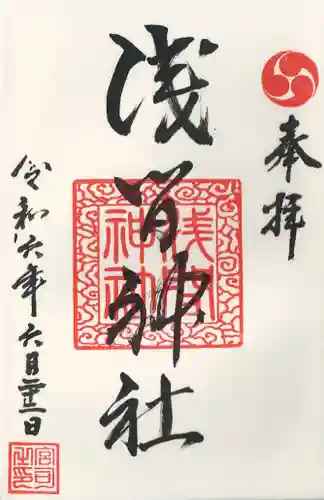 奉拝
浅間神社
浅間神社
令和六年六月日
宮司之印